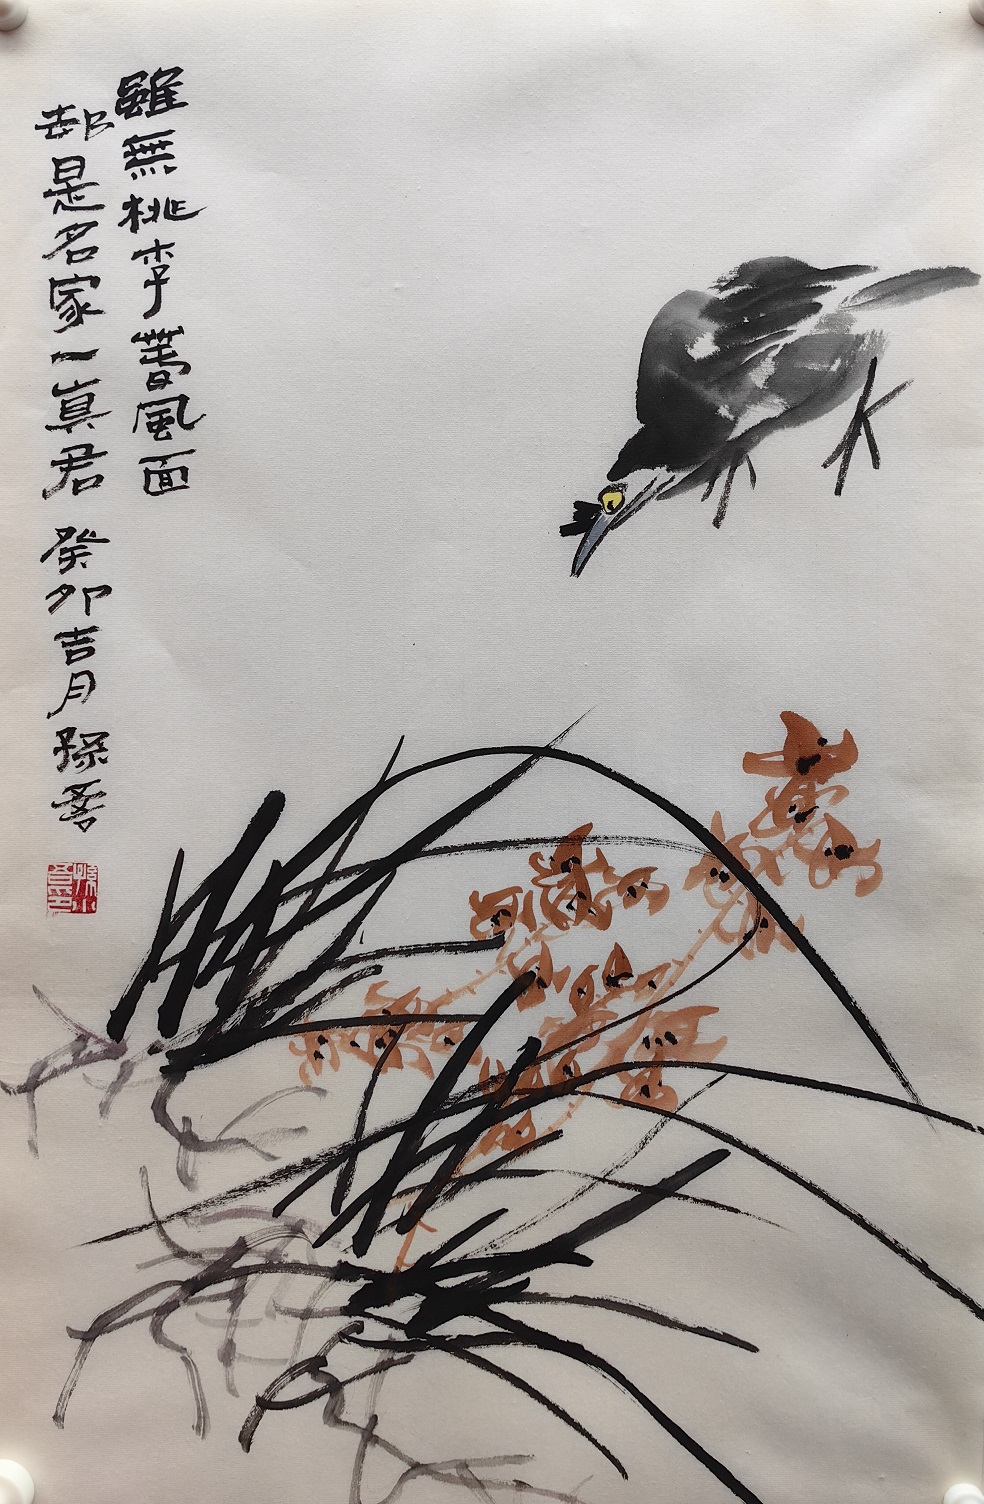 雖無桃李春風面
却是名家一真君 癸卯吉月